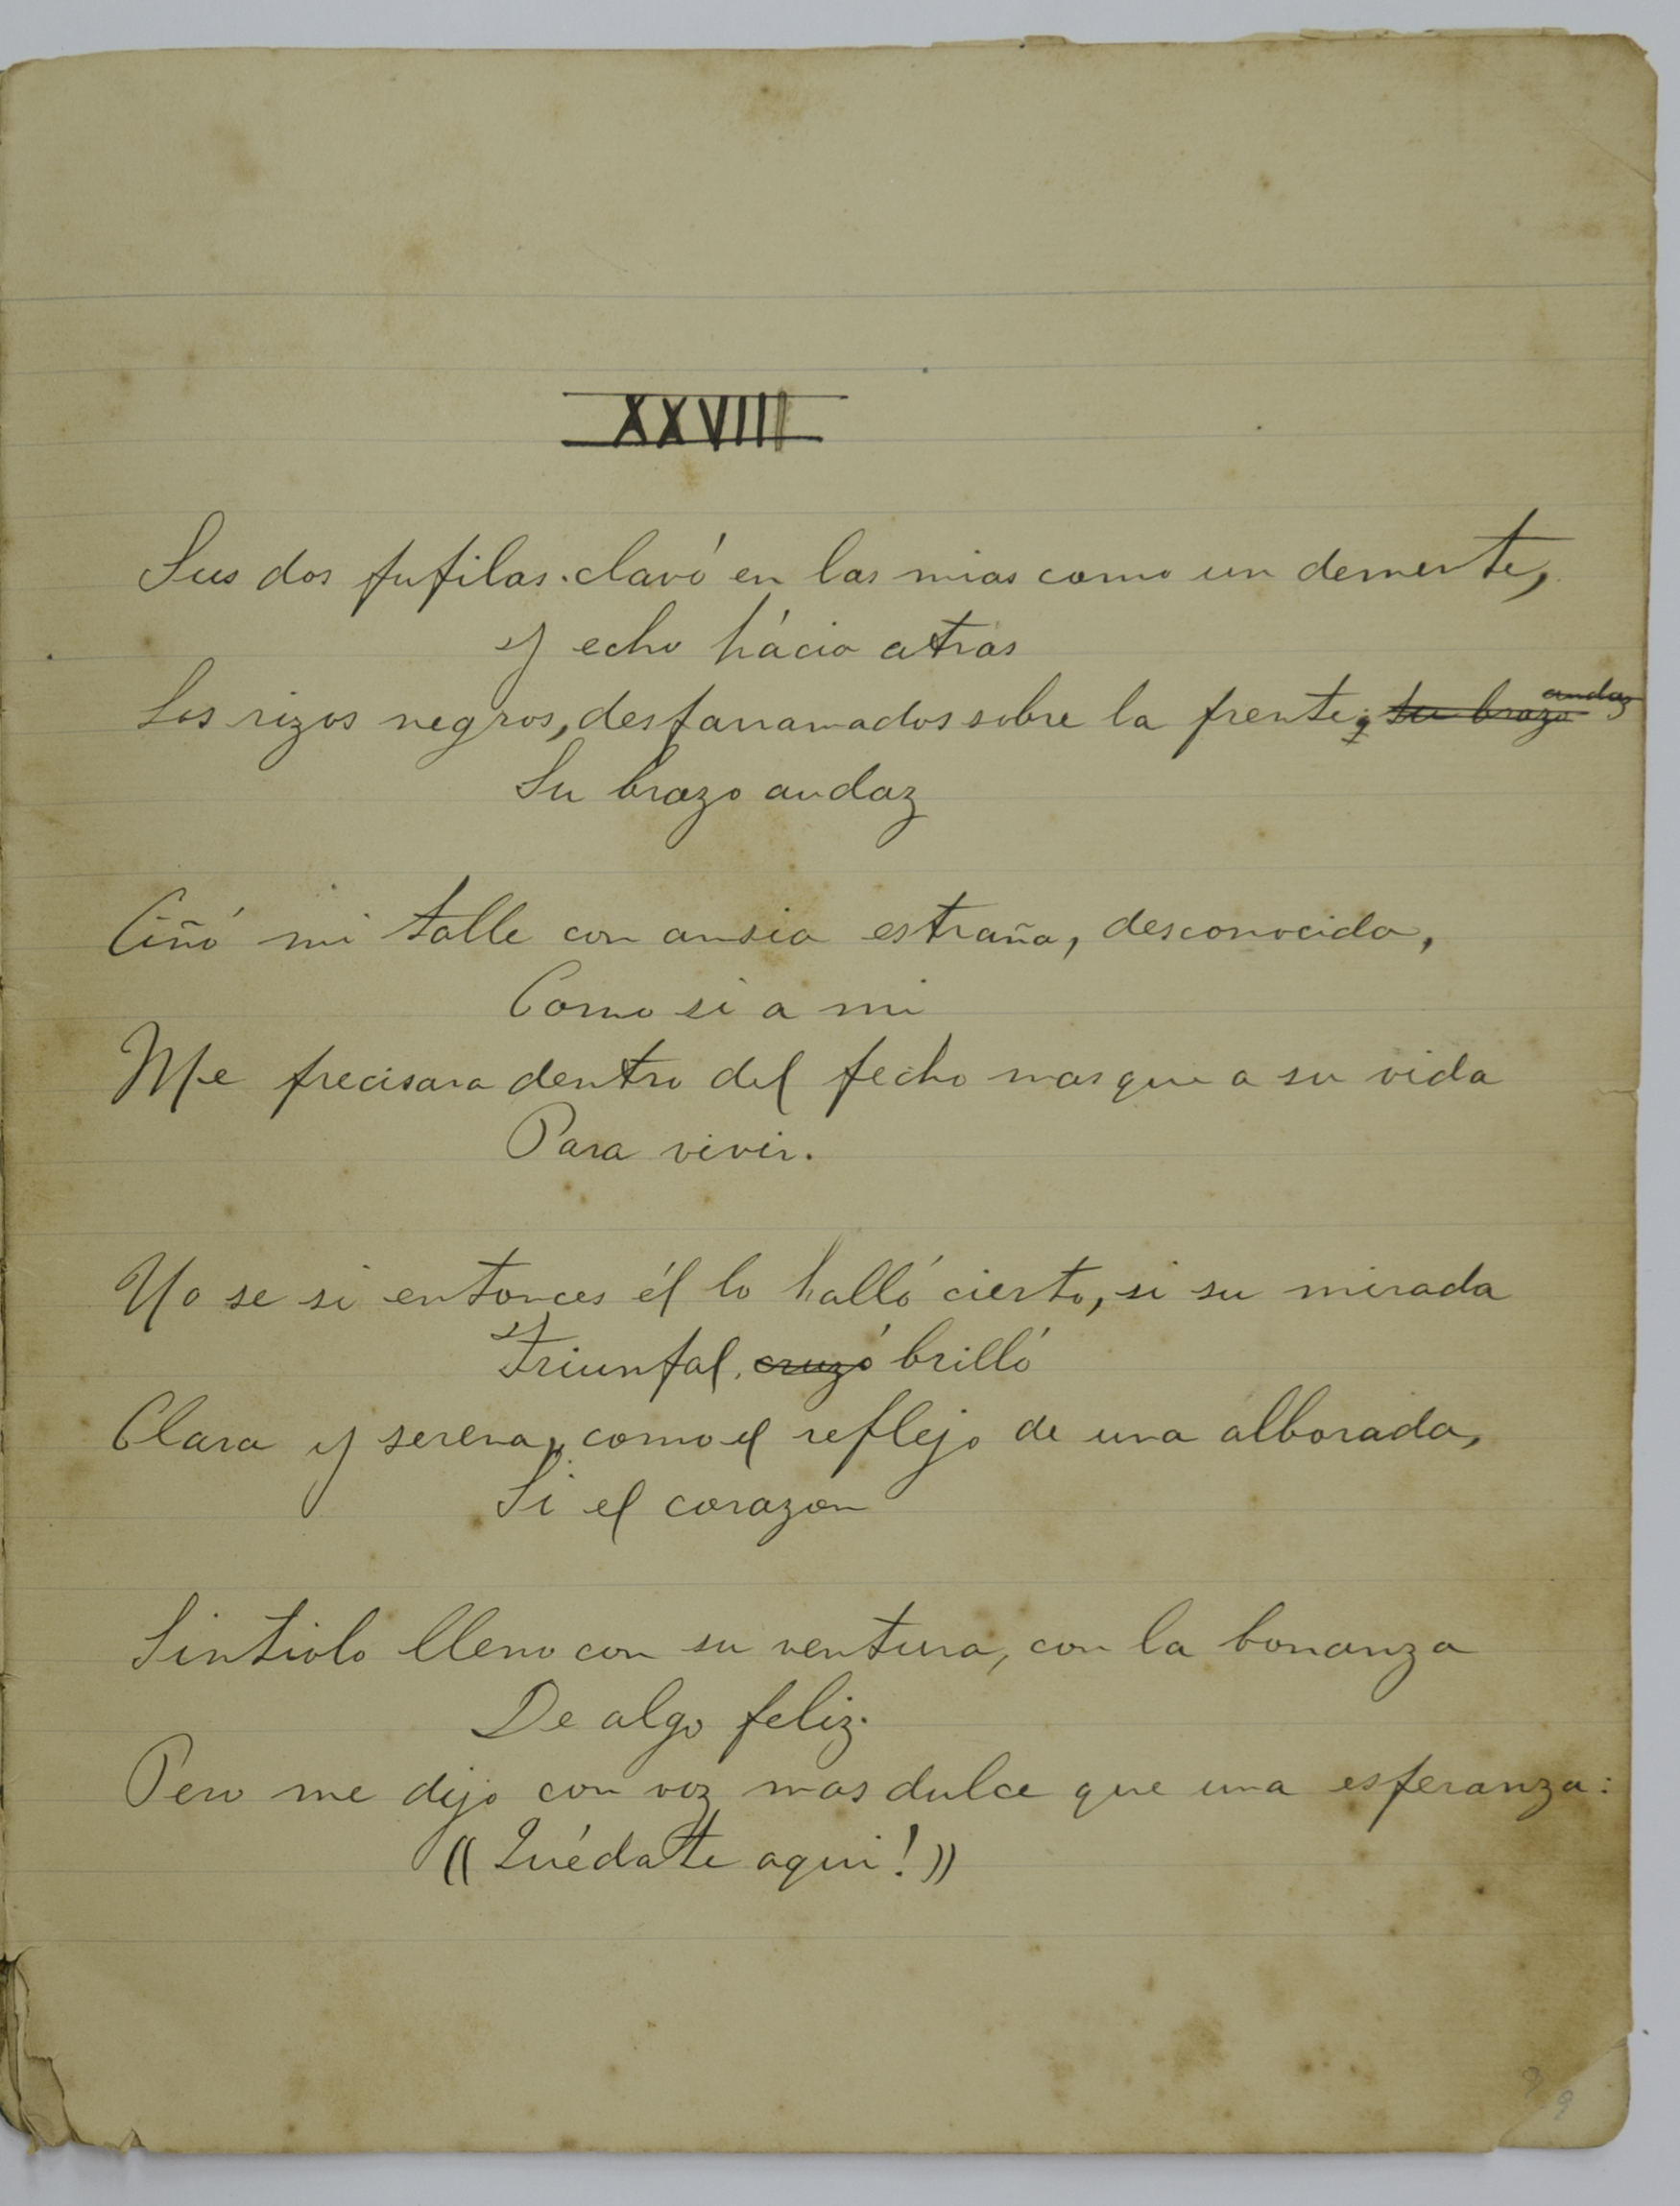 XXVIII
Sus dos pupilas clavó en las mias como un demente,
y echo hácia atras
Los rizos negros, desparramados sobre la frente; su brazo andaz
Su brazo audaz
Ciñó mi talle con ansia estraña, desconocida,
Como si a mi
Me precisara dentro del pecho mas que a su vida
Para vivir.
No se si entonces él lo halló cierto, si su mirada
Triunfal, cruzó brilló
Clara y serena, como el reflejo de una alborada,
Si el corazon
Sintiolo lleno con su ventura, con la bonanza
De algo feliz.
Pero me dijo con voz mas dulce que una esperanza:
((Quédate aqui!))